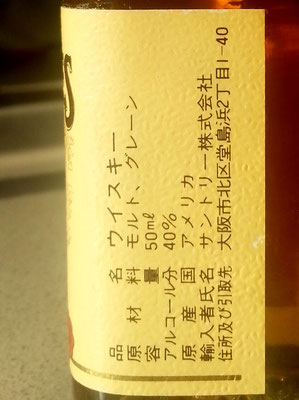 品名 ウイスキー
原材料 モルト、グレーン
容量 50mℓ
アルコール分 40%
原産国 アメリカ
輸入者氏名 サントリー株式会社
住所及び引取先 大阪市北区堂島浜2丁目1-40